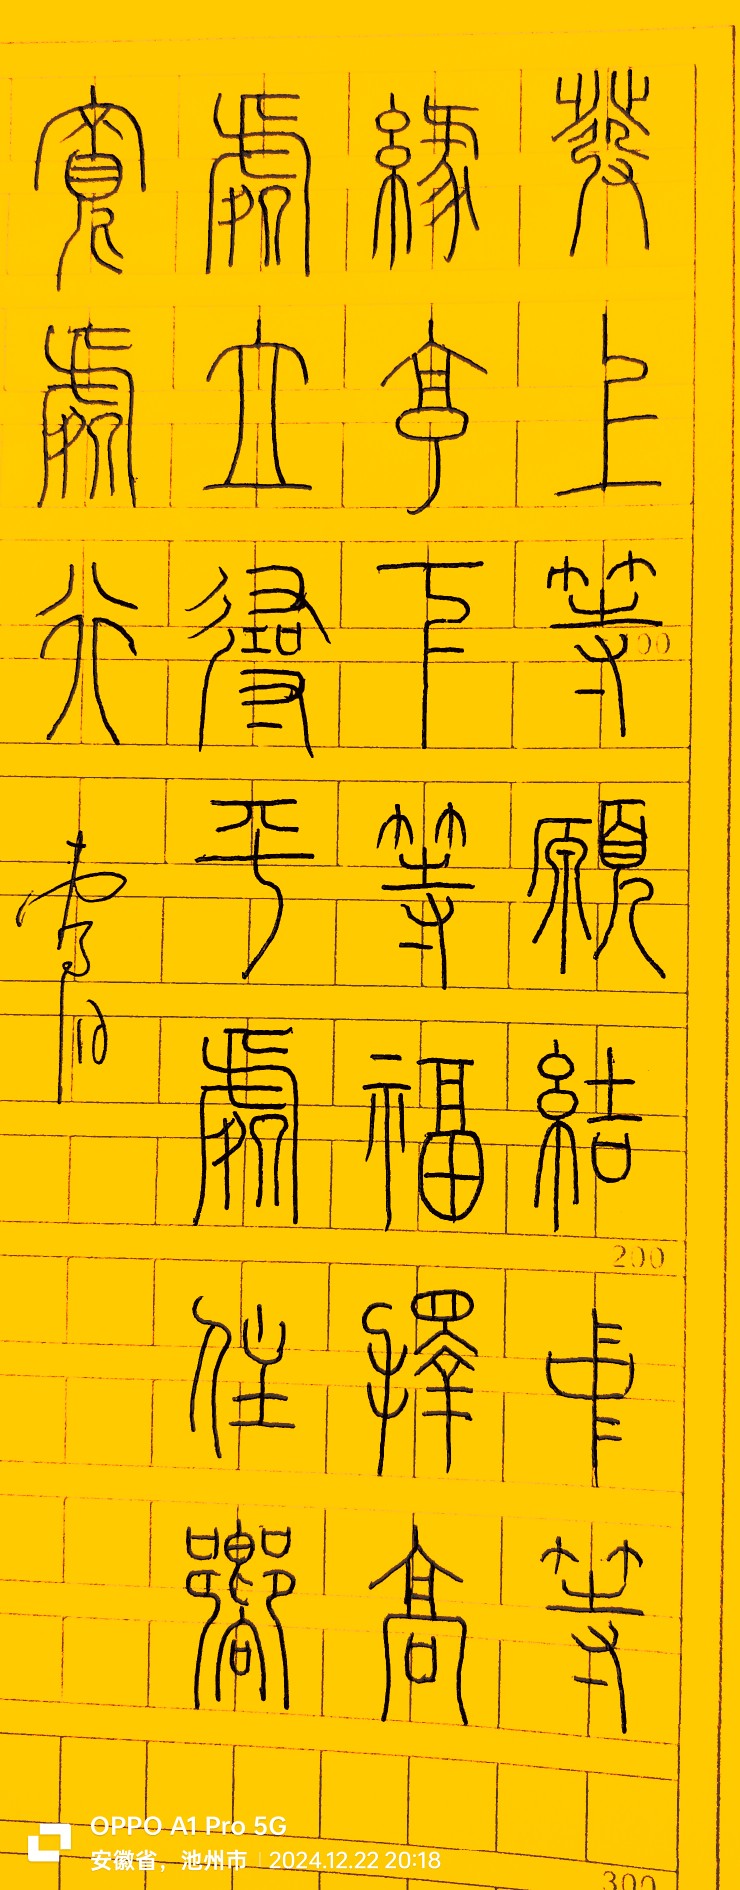 發上等願結中等
緣享下等福擇高
處立尋平處住嚮
寬處行
200
300
OPPO A1 Pro 5G
安徽省，池州市 | 2024.12.22 20:18